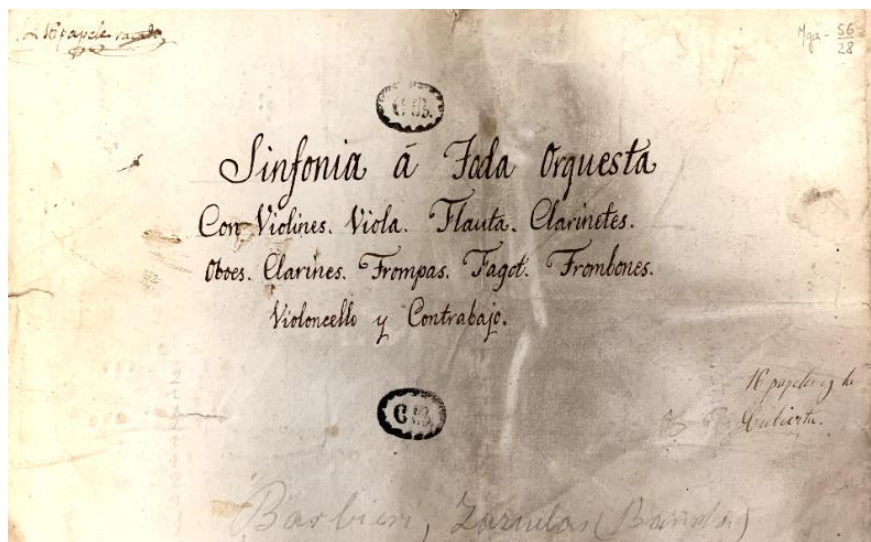 Son 16 papeles
Mga - 56
28
Sinfonia á Toda Orquesta
Con Violines. Viola. Flauta. Clarinetes.
Oboes. Clarines. Trompas. Fagot. Trombones.
Violoncello y Contrabajo.
16 papeles y la
Cubierta.
Barbieri, Zarzuelas (Banda)